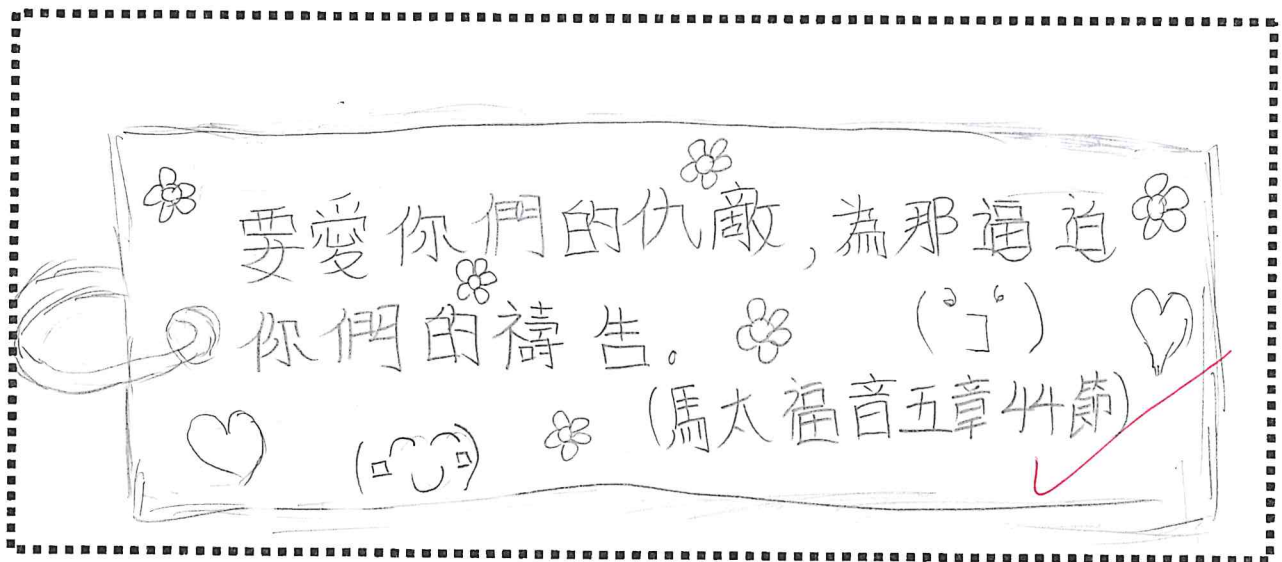 要愛你們的仇敵,為那逼迫
你們的禱告。
(馬太福音五章44節)